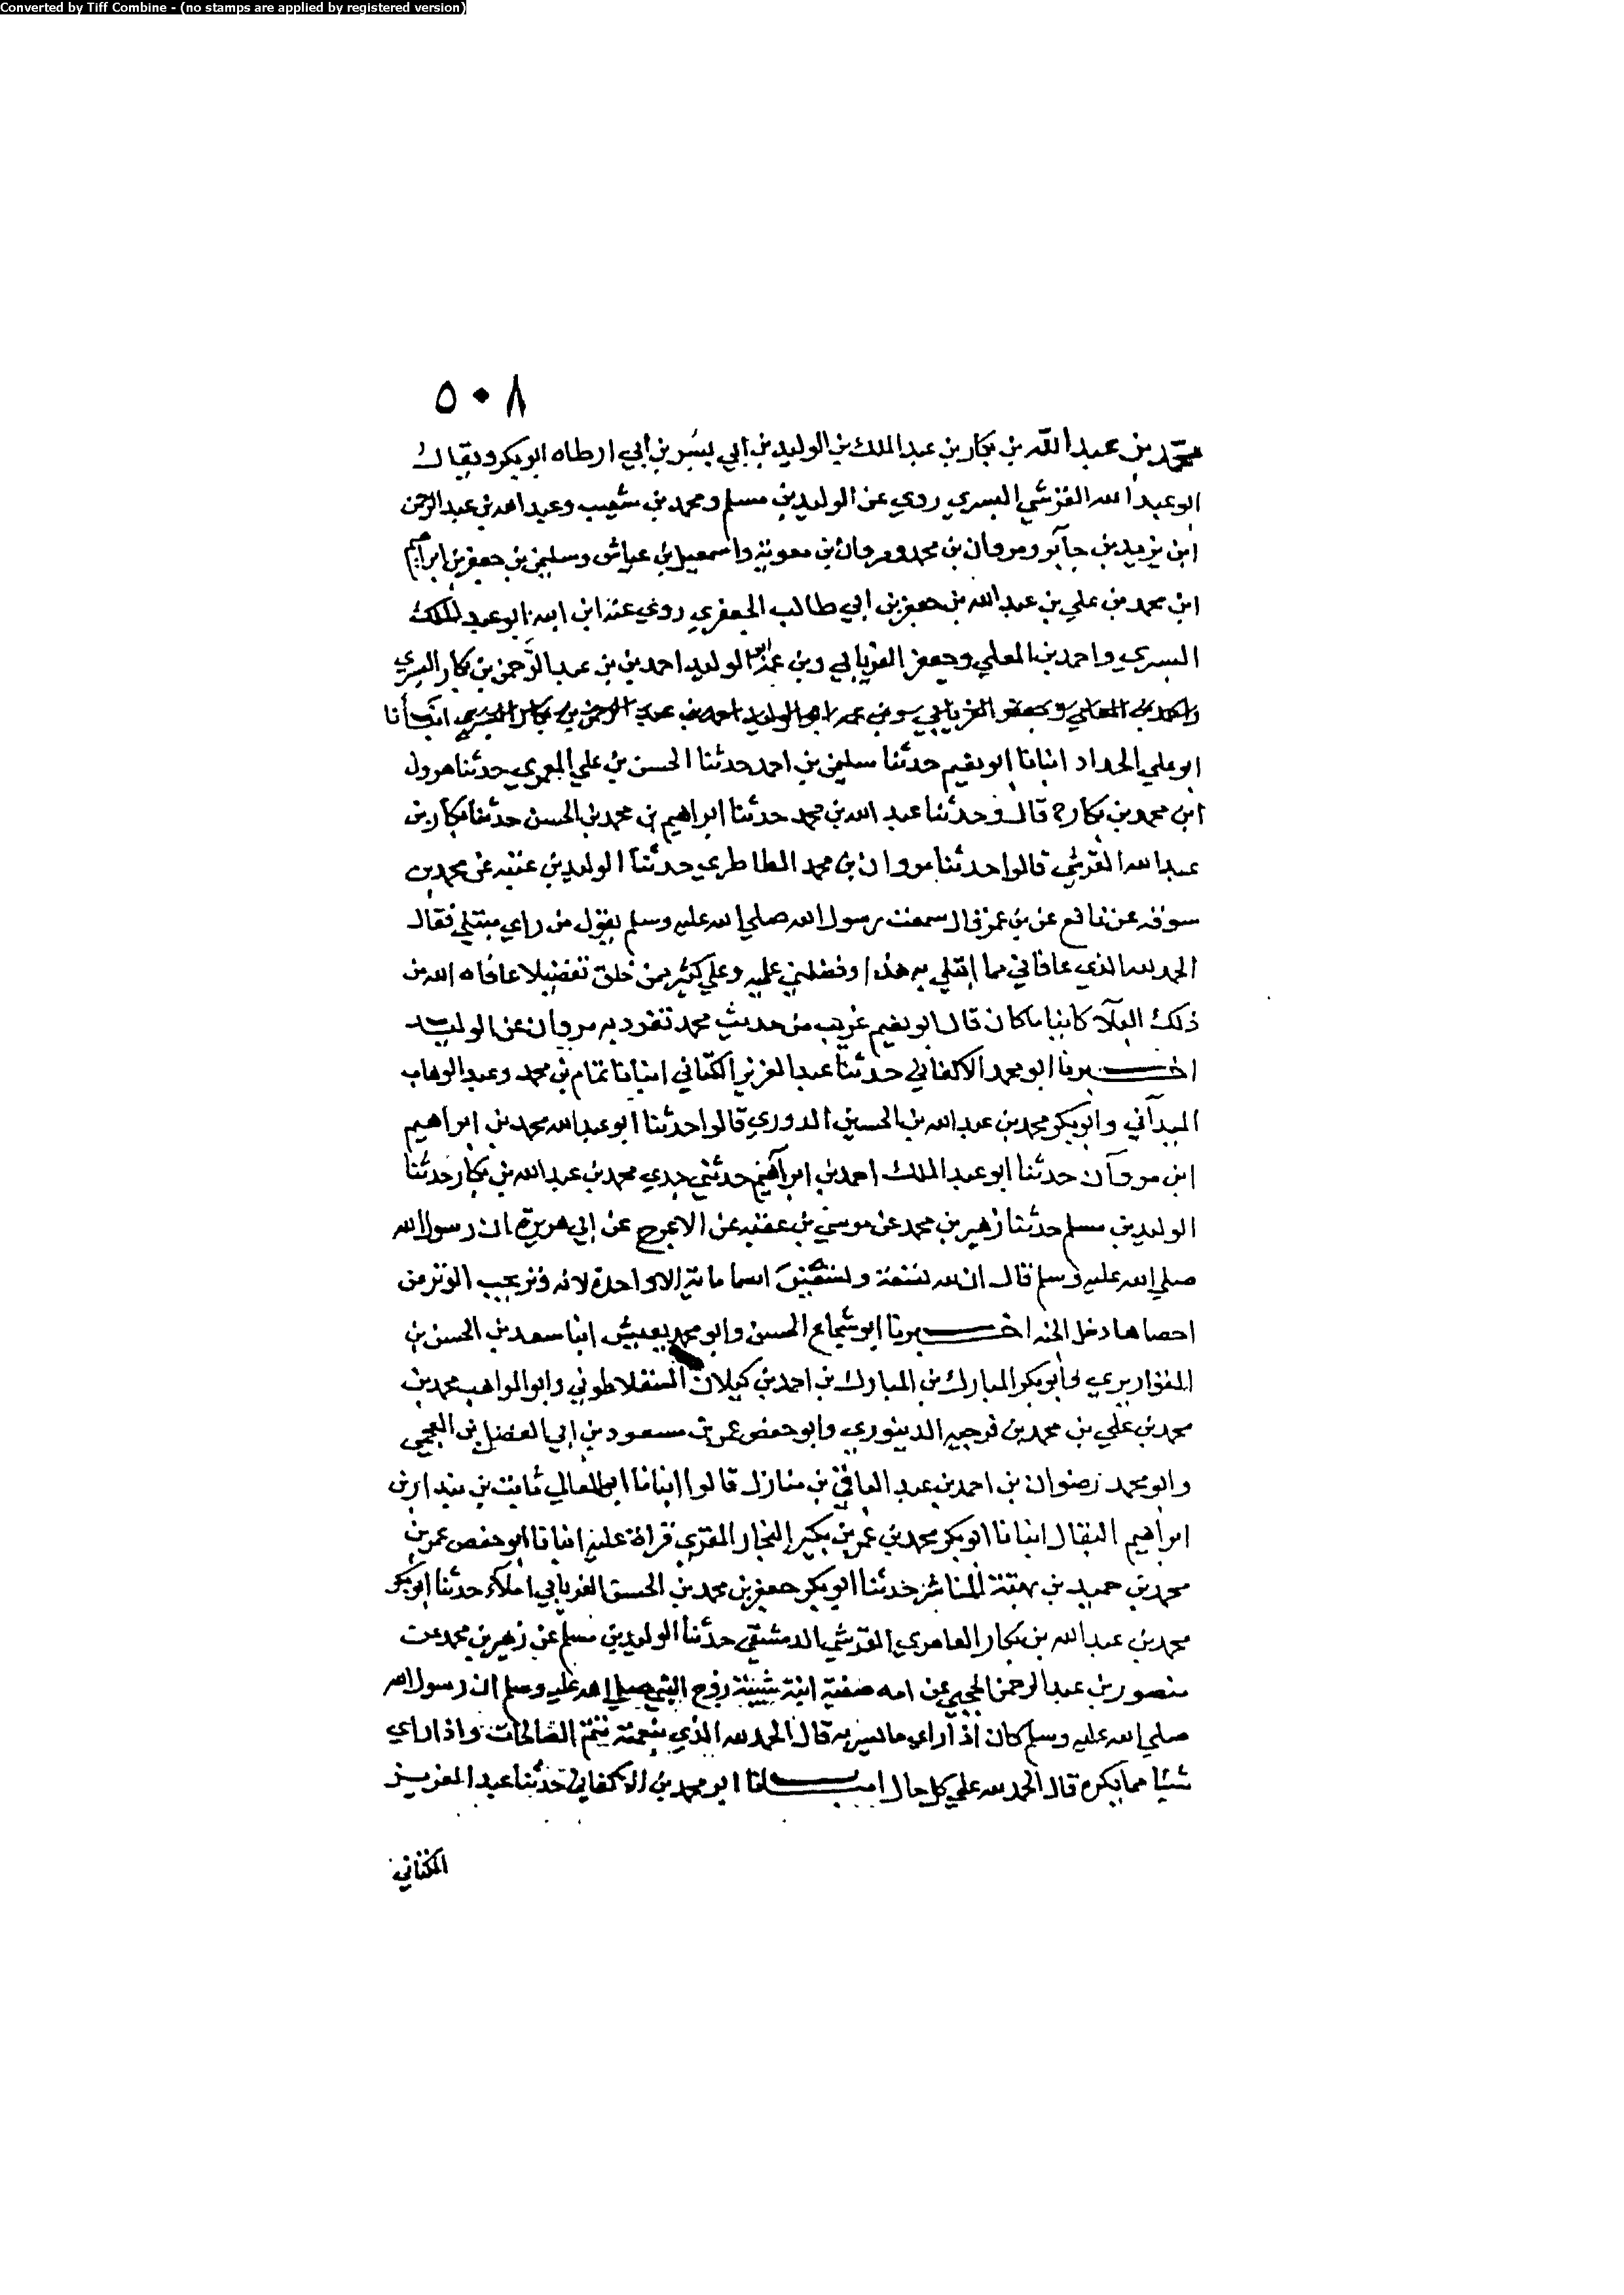 Converted by Tiff Combine - (no stamps are applied by registered version)
٥٠٨
محمد بن عبد الله بن بكار بن عبد الملك بن الوليد بن ابي بسر بن ابي ارطاه ابو بكر ويقال
ابو عبد الله القرشي البسري روي عن الوليد بن مسلم ومحمد بن شعيب وعبد الله بن عبد الرحمن
ابن يزيد بن جابر ومروان بن محمد ومروان بن معوية واسمعيل بن عياش وسليمن بن جعفر بن ابراهيم
ابن محمد بن علي بن عبد الله بن جعفر بن ابي طالب الجعفري روي عنه ابن ابنه ابو عبد الملك
البسري واحمد بن المعلي وجعفر الفريابي وبن عمه ابو الوليد احمد بن بن عبد الرحمن بن بكار البسري
واحمد بن المعلي وجعفر الفريابي وبن عمه ابو الوليد احمد بن عبد الرحمن بن بكار البسري انبأنا
ابو علي الحداد انبانا ابو نعيم حدثنا سليمن بن احمد حدثنا الحسن بن علي المعمري حدثنا هرون
ابن محمد بن بكار ح قال وحدثنا عبد الله بن محمد حدثنا ابراهيم بن محمد بن الحسن حدثنا بكار بن
عبد الله القرشي قالوا حدثنا مروان بن محمد الطاطري حدثنا الوليد بن عتبه عن محمد بن
سوقه عن نافع عن بن عمر قال سمعت رسول الله صلي الله عليه وسلم يقول من راي مبتلي فقال
الحمد لله الذي عافاني مما ابتلي به هذا وفضلني عليه وعلي كثير ممن خلق تفضيلا عافاه الله من
ذلك البلآ كاينا ما كان قال ابو نعيم غريب من حديث محمد تفرد به مروان عن الوليد
اخبرنا ابو محمد الاكفاني حدثنا عبد العزيز الكتاني انبانا تمام بن محمد وعبد الوهاب
الميداني وابو بكر محمد بن عبد الله بن الحسين الدوري قالوا حدثنا ابو عبد الله محمد بن ابراهيم
ابن مروآن حدثنا ابو عبد الملك احمد بن ابراهيم حدثني جدي محمد بن عبد الله بن بكار حدثنا
الوليد بن مسلم حدثنا زهير بن محمد عن موسي بن عقبه عن الاعرج عن ابي هريرة ان رسول الله
صلي الله عليه وسلم قال ان لله تسعة وتسعين اسما ماية الا واحدة لانه وتر يحب الوتر من
احصاها دخل الجنه اخبرنا ابو شجاع الحسن وابو محمد يعيش ابنا سعد بن الحسن بن
القواريري وابو بكر المبارك بن المبارك بن احمد بن كيلان السقلاطوني وابو المواهب محمد بن
محمد بن علي بن محمد بن فرجيه الدينوري وابو حفص عمر بن مسعود بن ابي الفضل بن العجمي
وابو محمد رضوان بن احمد بن عبد الباقي بن منازل قالوا انبانا ابو المعالي ثابت بن بندار بن
ابراهيم البقال انبانا ابو بكر محمد بن عمر بن بكير النجار المقري قراة عليه انبانا ابو حفص عمر بن
محمد بن حميد بن بهتة المناشر حدثنا ابو بكر جعفر بن محمد بن الحسن الفريابي املاء حدثنا ابو بكر
محمد بن عبد الله بن بكار العامري القرشي الدمشقي حدثنا الوليد بن مسلم عن زهير بن محمد عن
منصور بن عبد الرحمن الحجبي عن امه صفية ابنة شيبة زوج النبي صلي الله عليه وسلم ان رسول الله
صلي الله عليه وسلم كان اذا راي ما يسر به قال الحمد لله الذي بنعمته تتم الصالحات واذا راي
شيئا مما يكره قال الحمد لله علي كل حال انبانا ابو محمد بن الاكفاني حدثنا عبد العزيز
الكتاني